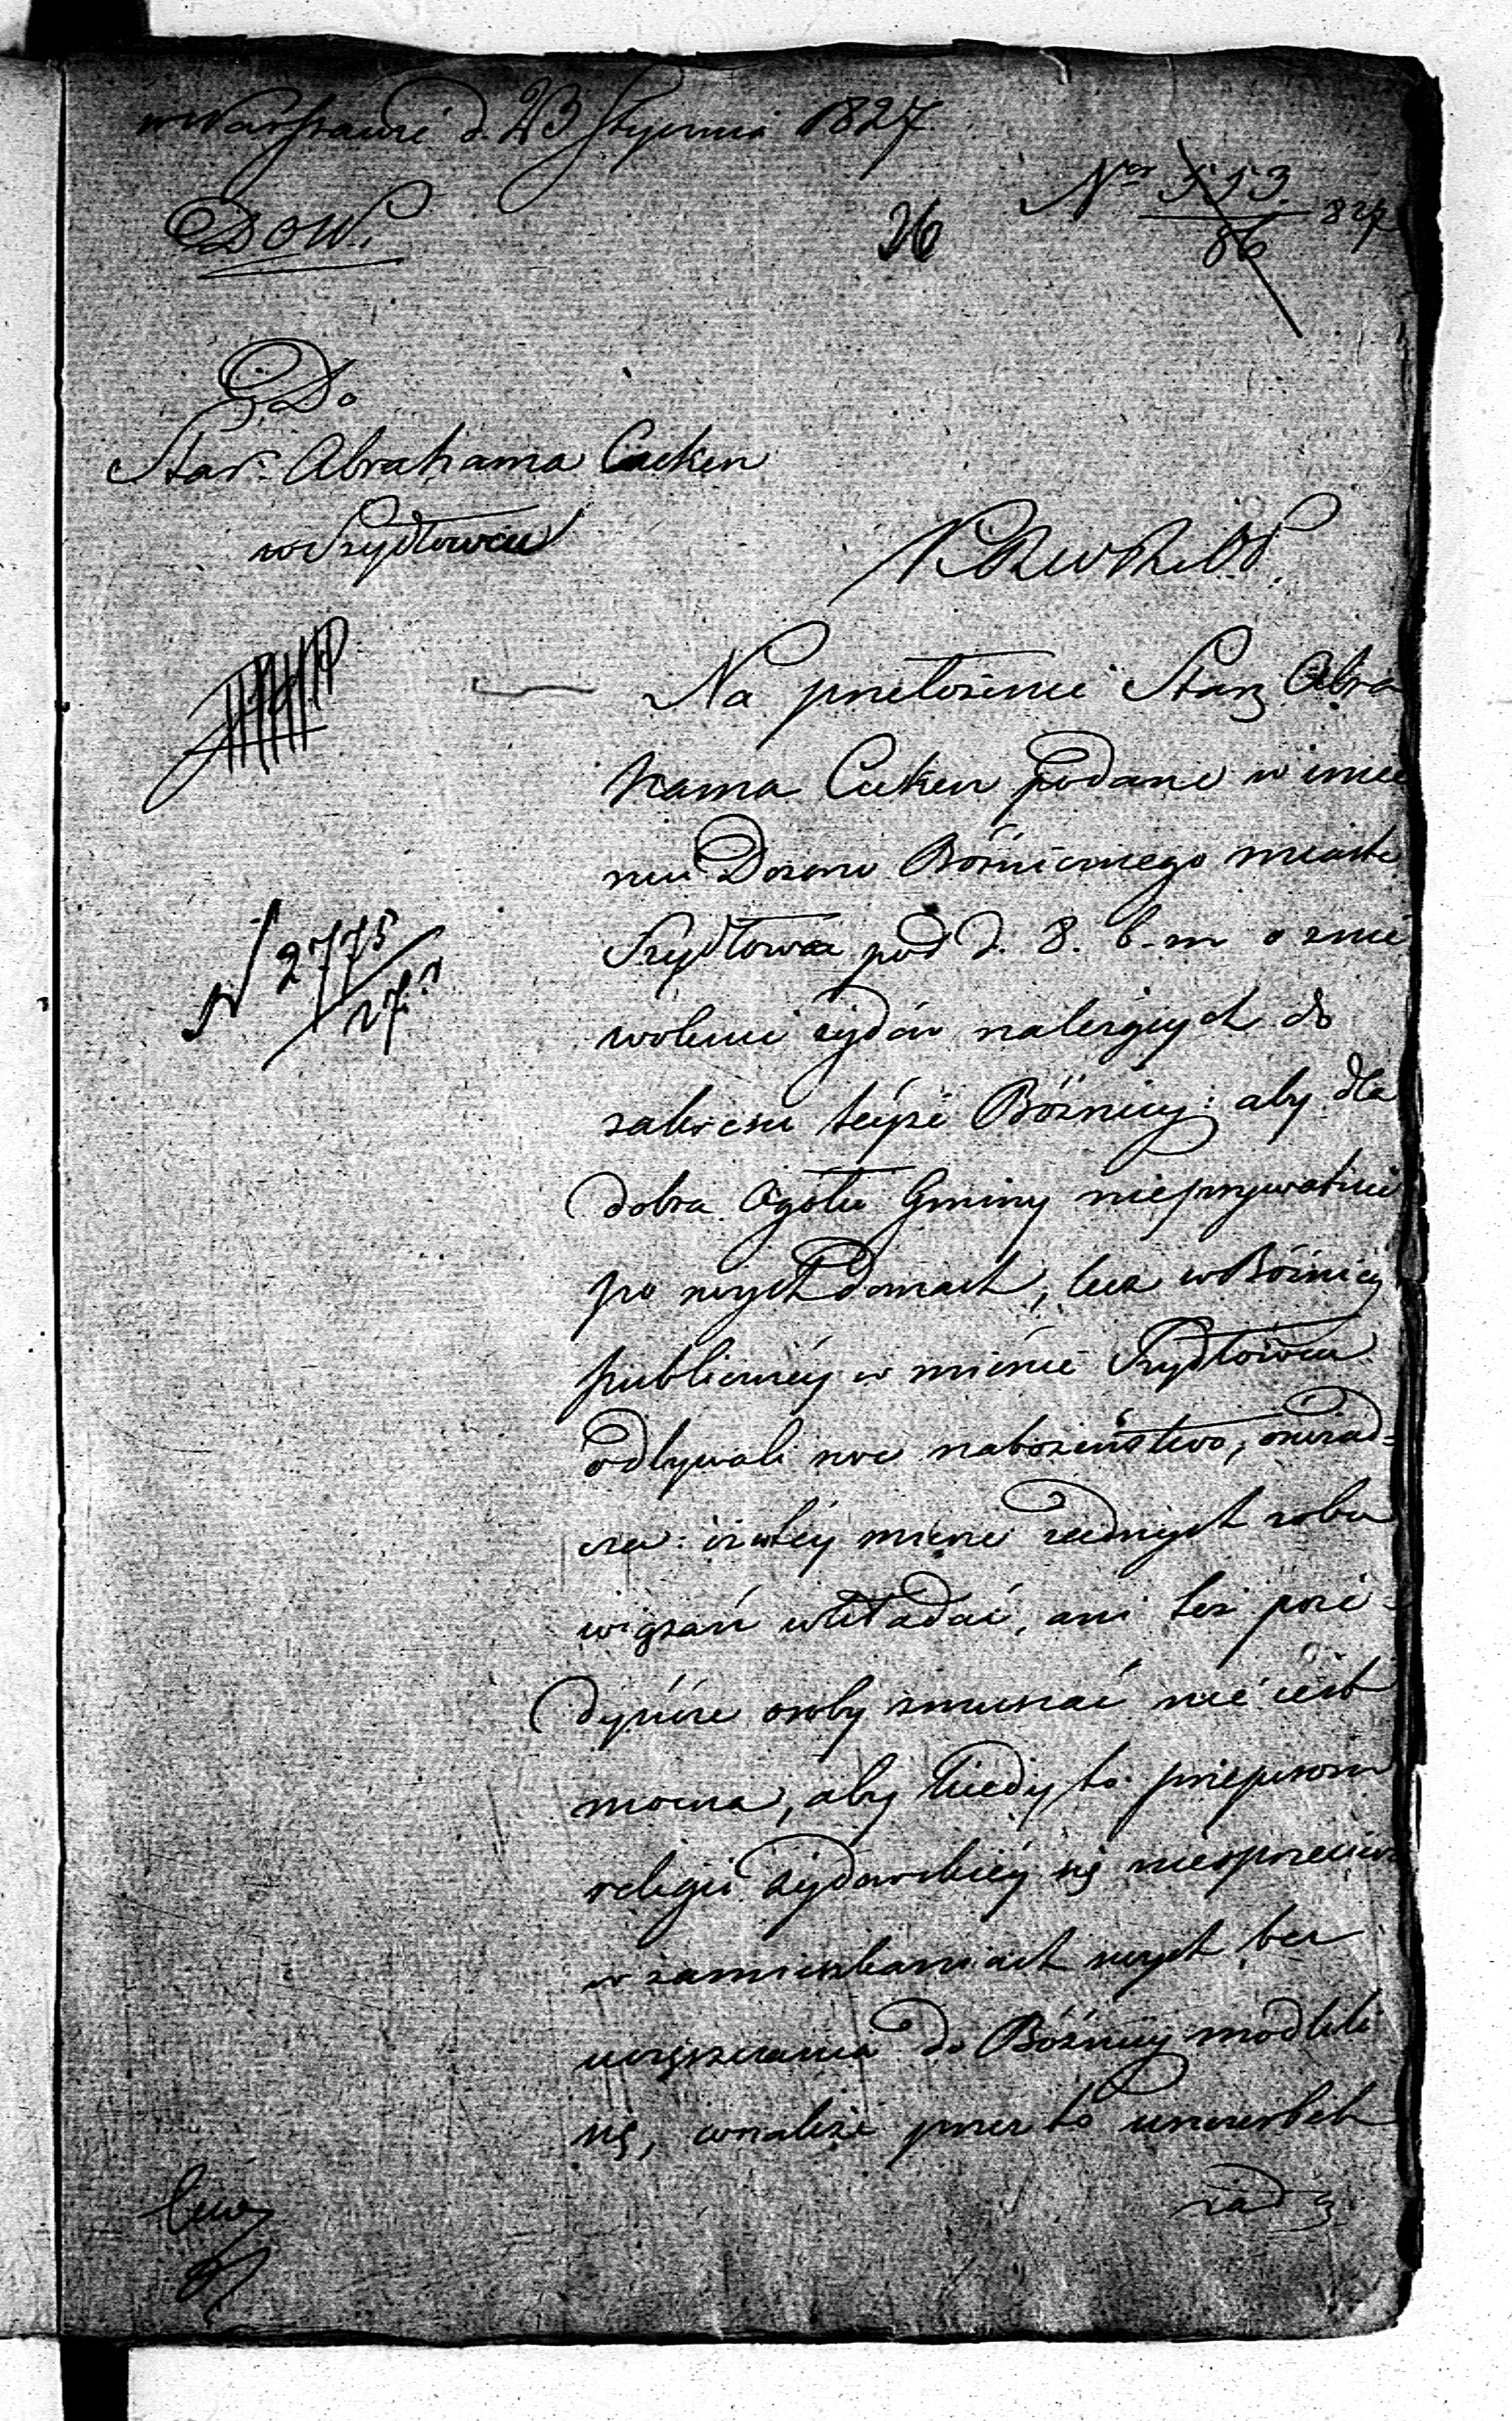 w Warszawie d. 23 Stycznia 1827.
DOW.
26
Nro 553.
86
827
Do
Star: Abrahama Cecken
w Szydłowcu
K R W R i O P.
Na przełożenie Starz Abra
hama Cecken podane w imie
niu Dozoru Bóżnicznego miasta
Szydłowca pod d. 8. b. m o znie
wolenie żydów należących do
zakresu teyże Bóżnicy: aby dla
dobra Ogółu Gminy nieprywatnie
po swych domach, lecz w Bóżnicy
publiczney w mieście Szydłowcu
odbywali swe nabożeństwo, oświad-
cza: iż w tey mierze żadnych zobo
wiązań wkładać, ani też poie-
dyńcze osoby zmuszać nie iest
można, aby kiedy to przepisom
religii żydowskiéy się niesprzeciwia
w zamieszkaniach swych bez
uczęszczania do Bóżnicy modlili
się, wszakże przez to uszczerbek
żadny
N 2775
27.